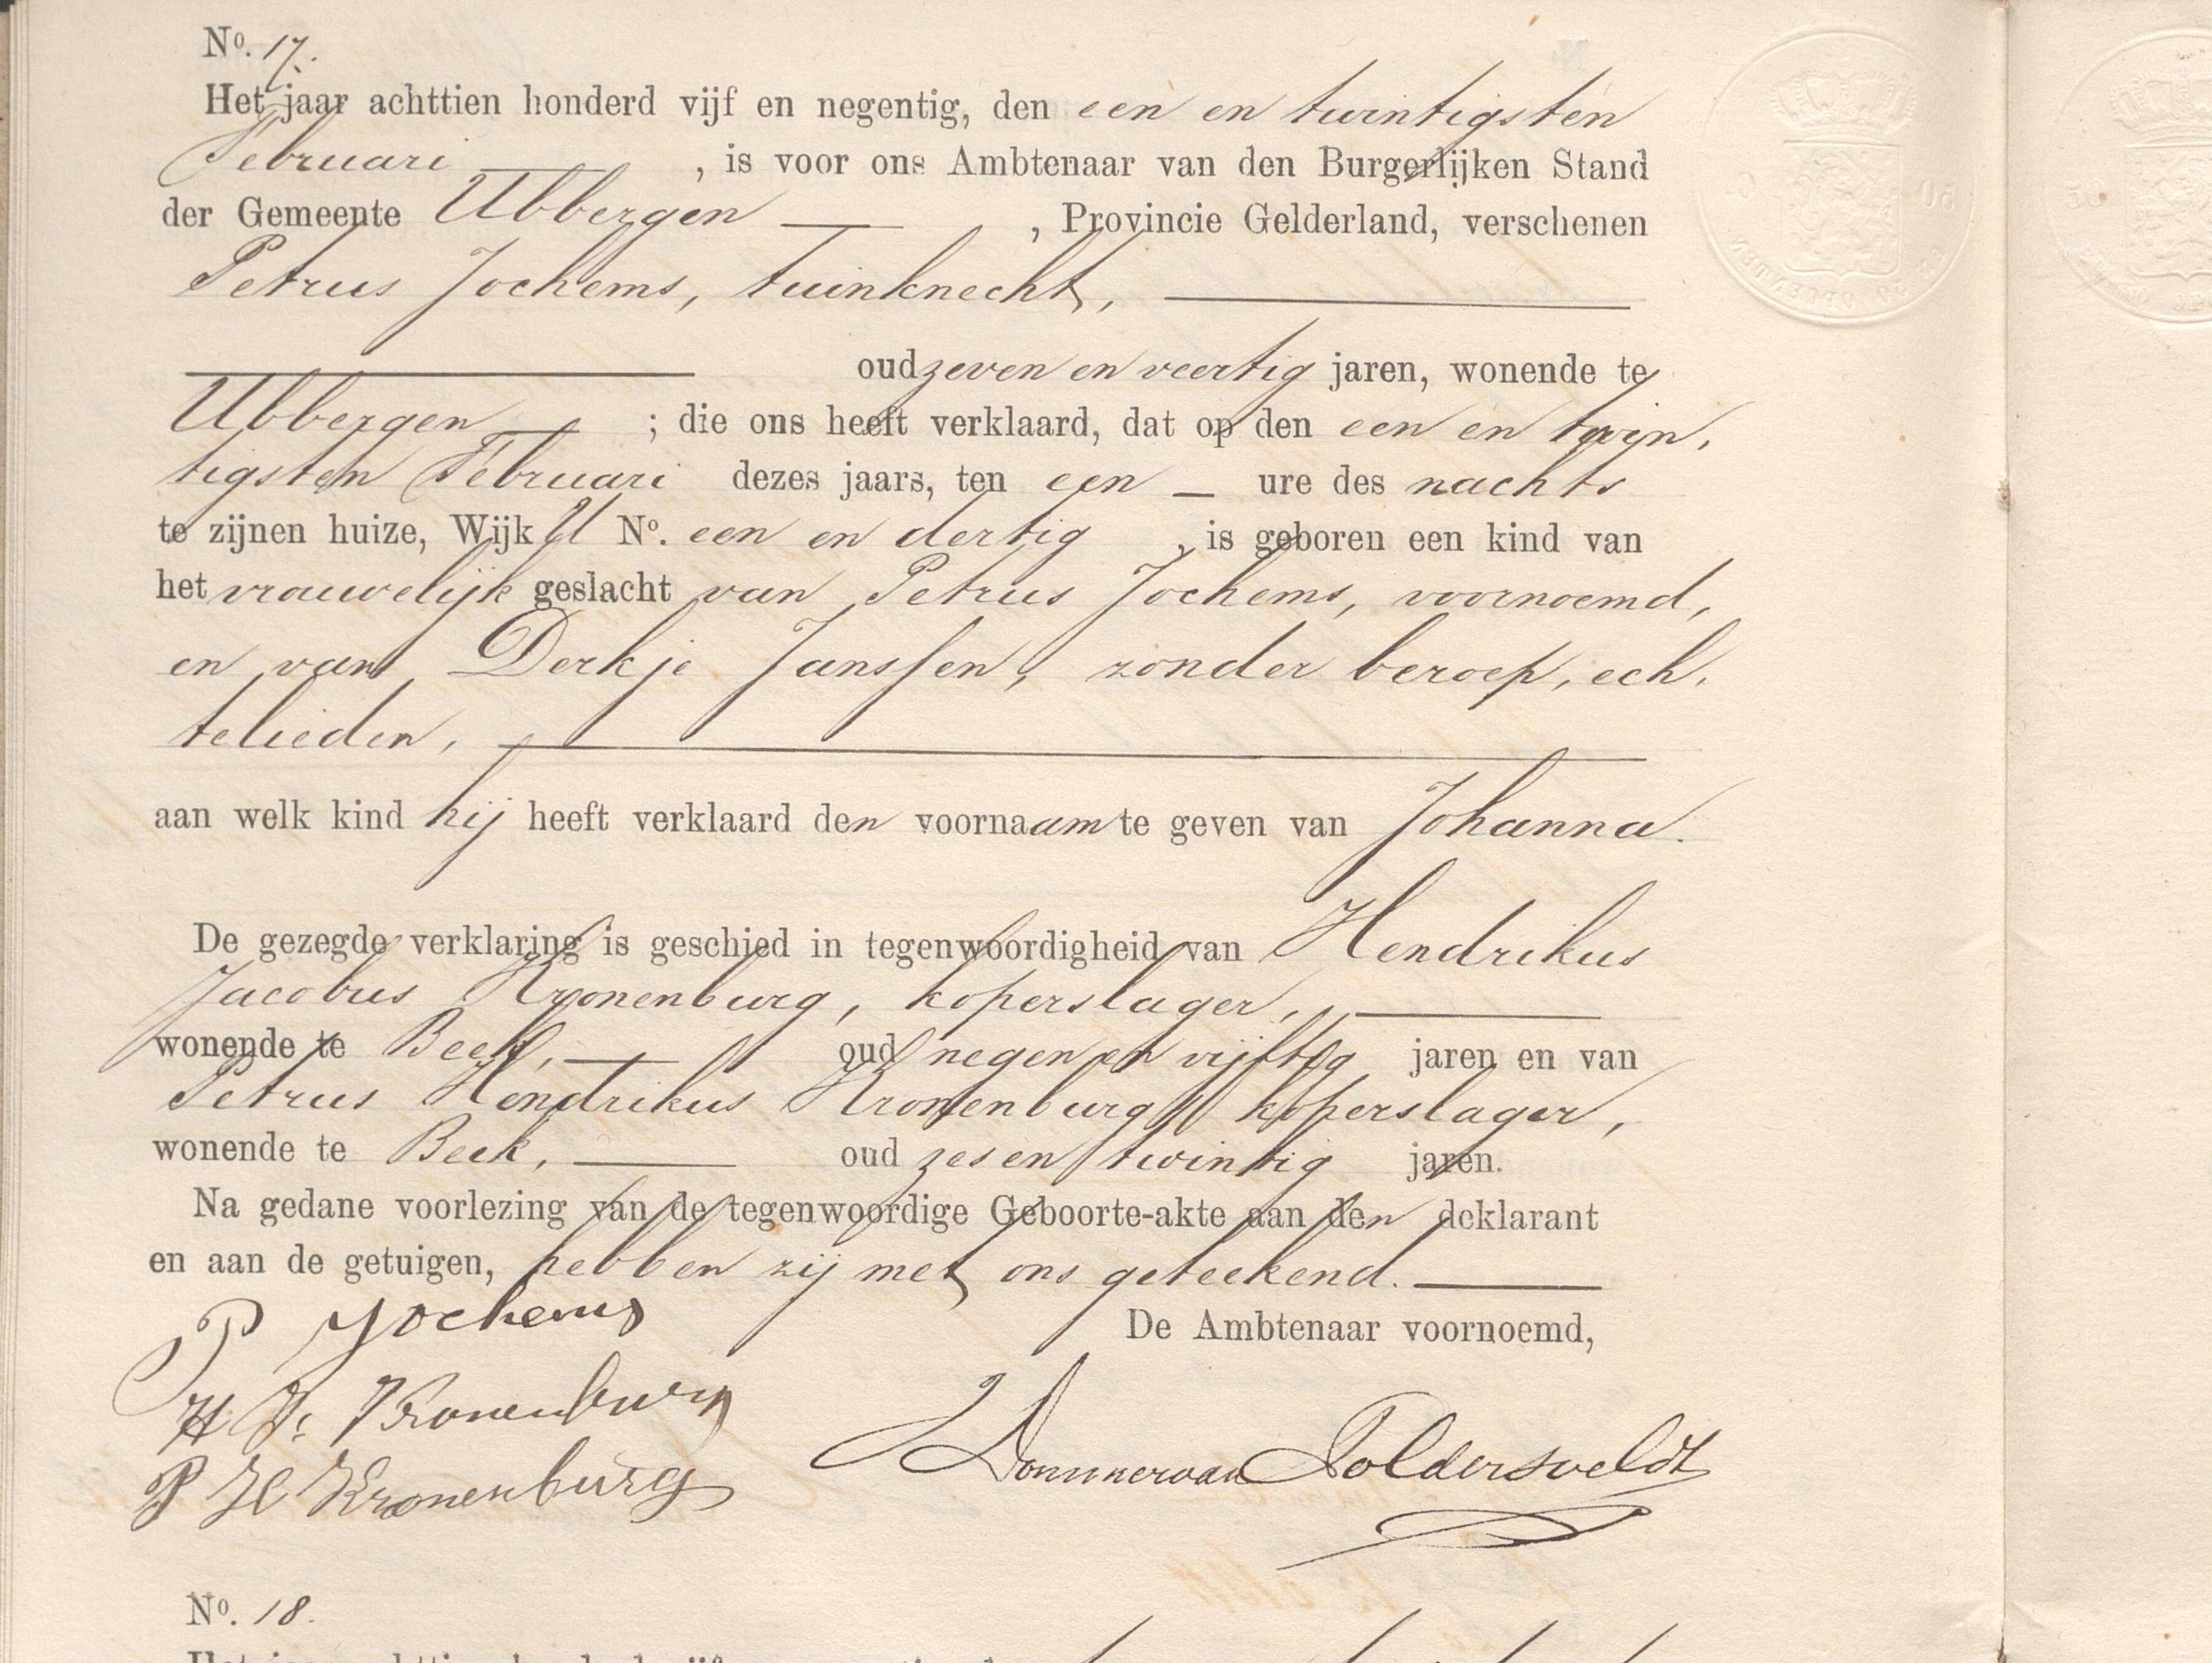 No. 17.
Het jaar achttien honderd vijf en negentig, den een en twintigsten
Februari , is voor ons Ambtenaar van den Burgerlijken Stand
der Gemeente Ubbergen — , Provincie Gelderland, verschenen
Petrus Jochems, tuinknecht, —
— oud zeven en veertig jaren, wonende te
Ubbergen — ; die ons heeft verklaard, dat op den een en twin,
tigsten Februari dezes jaars, ten een — ure des nachts
te zijnen huize, Wijk U No. een en dertig , is geboren een kind van
het vrouwelijk geslacht van Petrus Jochems, voornoemd,
en van Derkje Janssen, zonder beroep, ech,
telieden, —
aan welk kind hij heeft verklaard den voornaam te geven van Johanna.
De gezegde verklaring is geschied in tegenwoordigheid van Hendrikus
Jacobus Kronenburg, koperslager, —
wonende te Beek, — oud negen en vijftig jaren en van
Petrus Hendrikus Kronenburg, koperslager,
wonende te Beek, — oud zes en twintig jaren.
Na gedane voorlezing van de tegenwoordige Geboorte-akte aan den deklarant
en aan de getuigen, hebben zij met ons geteekend. —
P Jochems
De Ambtenaar voornoemd,
H J. Kronenburg
van Poldersveldt
P H Kronenburg
No. 18.